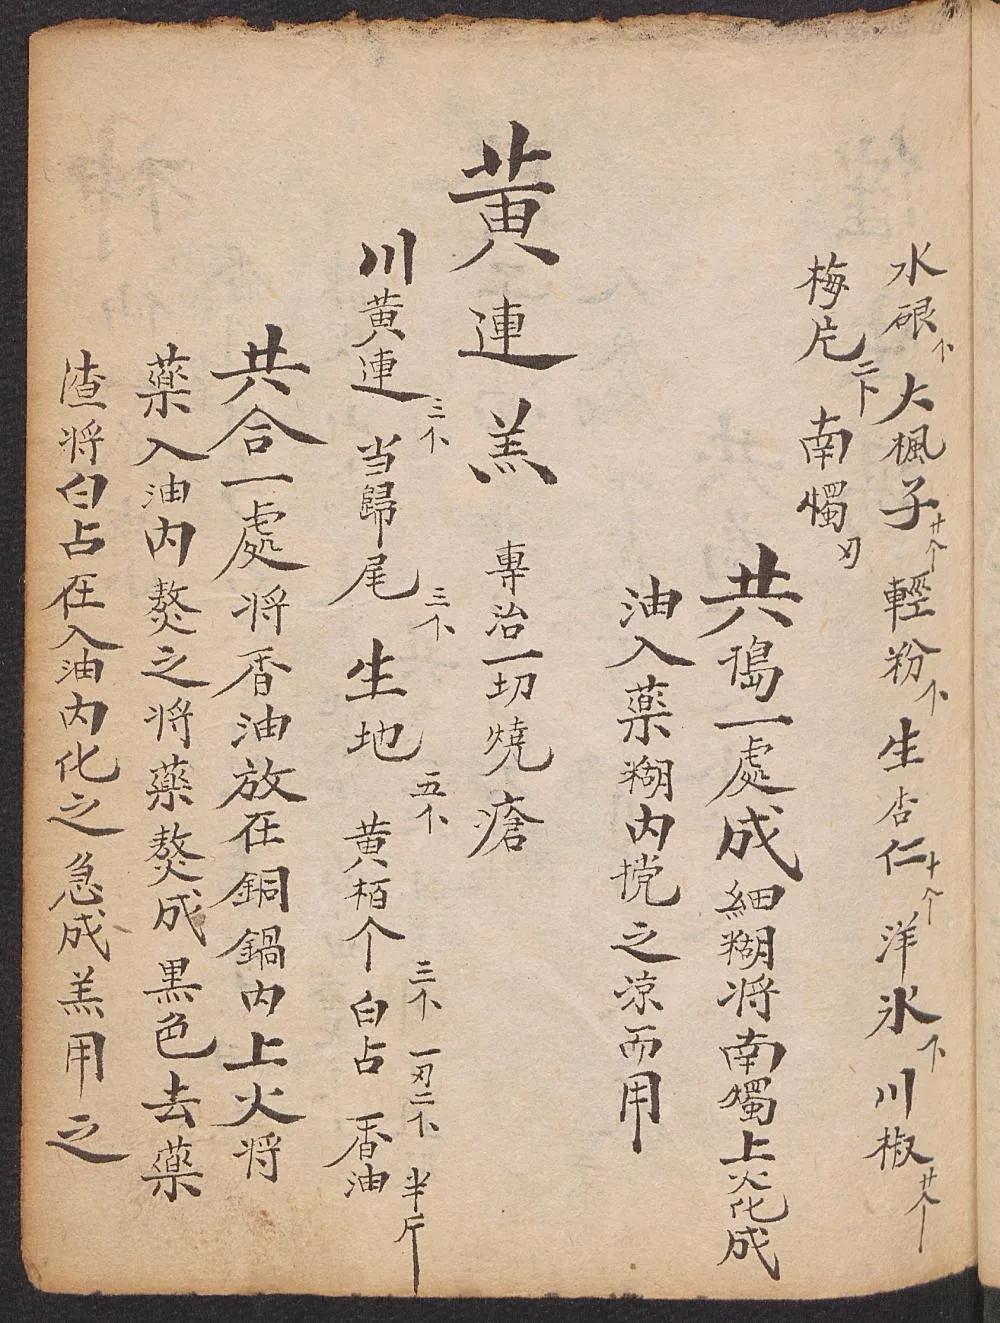 水硍个大楓子廿个輕粉个生杏仁十个洋氷下川椒廿个
梅片二下南燭刃
共搗一處成細糊将南燭上火化成
油入藥糊内㨪之凉而用
黄連羔 專治一切燒瘡
川黄連三个当歸尾三个生地五个黄栢个三个白占一刃二个香油半斤
共合一處将香油放在銅鍋内上火将
藥入油内熬之将藥熬成黒色去藥
渣将白占在入油内化之急成羔用之